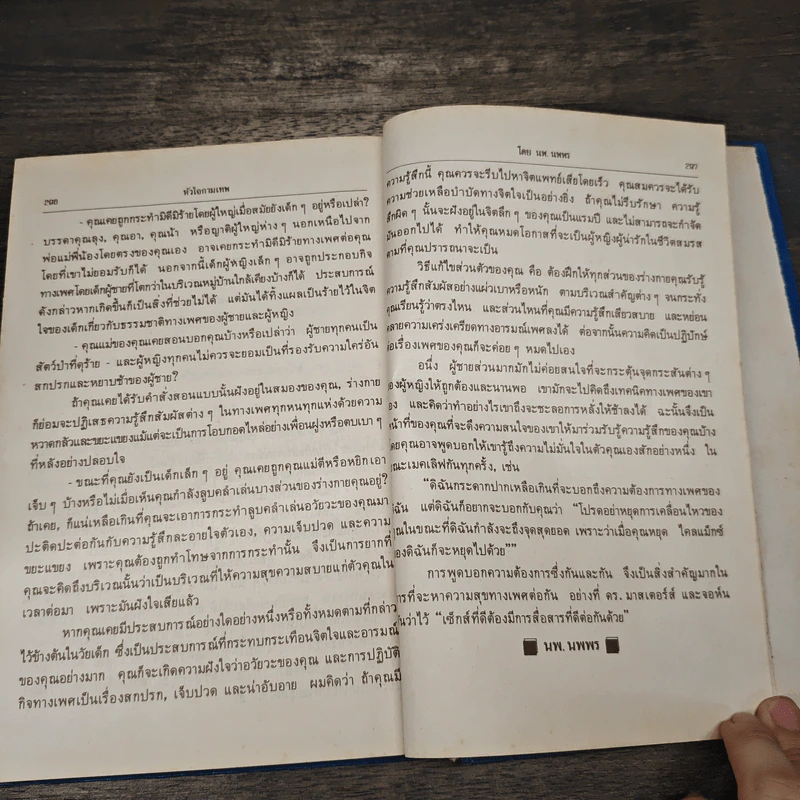 296
หัวโอกามเทพ
- คุณเคยถูกกระทำมิดีมิร้ายโดยผู้ใหญ่เมื่อสมัยยังเด็ก ๆ อยู่หรือเปล่า?
บรรดาคุณลุง, คุณอา, คุณน้า หรือญาติผู้ใหญ่ห่าง ๆ นอกเหนือไปจาก
พ่อแม่พี่น้องโดยตรงของคุณเอง อาจเคยกระทำมิดีมิร้ายทางเพศต่อคุณ
โดยที่เขาไม่ยอมรับก็ได้ นอกจากนี้เด็กผู้หญิงเล็ก ๆ อาจถูกประกอบกิจ
ทางเพศโดยเด็กผู้ชายที่โตกว่าในบริเวณหมู่บ้านใกล้เคียงบ้างก็ได้ ประสบการณ์
ดังกล่าวหากเกิดขึ้นก็เป็นสิ่งที่ช่วยไม่ได้ แต่มันได้ทิ้งแผลเป็นร้ายไว้ในจิต
ใจของเด็กเกี่ยวกับธรรมชาติทางเพศของผู้ชายและผู้หญิง
- คุณแม่ของคุณเคยสอนบอกคุณบ้างหรือเปล่าว่า ผู้ชายทุกคนเป็น
สัตว์ป่าที่ดุร้าย - และผู้หญิงทุกคนไม่ควรจะยอมเป็นที่รองรับความใคร่อัน
สกปรกและหยาบช้าของผู้ชาย?
ถ้าคุณเคยได้รับคำสั่งสอนแบบนั้นฝังอยู่ในสมองของคุณ, ร่างกาย
ก็ย่อมจะปฏิเสธความรู้สึกสัมผัสต่าง ๆ ในทางเพศทุกหนทุกแห่งด้วยความ
หวาดกลัวและขยะแขยงแม้แต่จะเป็นการโอบกอดไหล่อย่างเพื่อนฝูงหรือตบเบา ๆ
ที่หลังอย่างปลอบใจ
- ขณะที่คุณยังเป็นเด็กเล็ก ๆ อยู่ คุณเคยถูกคุณแม่ตีหรือหยิกเอา
เจ็บ ๆ บ้างหรือไม่เมื่อเห็นคุณกำลังลูบคลำเล่นบางส่วนของร่างกายคุณอยู่?
ถ้าเคย, ก็แน่เหลือเกินที่คุณจะเอาการกระทำลูบคลำเล่นอวัยวะของคุณมา
ปะติดปะต่อกันกับความรู้สึกละอายใจตัวเอง, ความเจ็บปวด และความ
ขยะแขยง เพราะคุณต้องถูกทำโทษจากการกระทำนั้น จึงเป็นการยากที่
คุณจะคิดถึงบริเวณนั้นว่าเป็นบริเวณที่ให้ความสุขความสบายแก่ตัวคุณใน
เวลาต่อมา เพราะมันฝังใจเสียแล้ว
หากคุณเคยมีประสบการณ์อย่างใดอย่างหนึ่งหรือทั้งหมดตามที่กล่าว
ไว้ข้างต้นในวัยเด็ก ซึ่งเป็นประสบการณ์ที่กระทบกระเทือนจิตใจและอารมณ์
ของคุณอย่างมาก คุณก็จะเกิดความฝังใจว่าอวัยวะของคุณ และการปฏิบัติ
กิจทางเพศเป็นเรื่องสกปรก, เจ็บปวด และน่าอับอาย ผมคิดว่า ถ้าคุณมี
โดย นพ. นพพร
297
ความรู้สึกนี้ คุณควรจะรีบไปหาจิตแพทย์เสียโดยเร็ว คุณสมควรจะได้รับ
ความช่วยเหลือบำบัดทางจิตใจเป็นอย่างยิ่ง ถ้าคุณไม่รีบรักษา ความรู้
สึกผิด ๆ นั้นจะฝังอยู่ในจิตลึก ๆ ของคุณเป็นแรมปี และไม่สามารถจะกำจัด
มันออกไปได้ ทำให้คุณหมดโอกาสที่จะเป็นผู้หญิงผู้น่ารักในชีวิตสมรส
ตามที่คุณปรารถนาจะเป็น
วิธีแก้ไขส่วนตัวของคุณ คือ ต้องฝึกให้ทุกส่วนของร่างกายคุณรับรู้
ความรู้สึกสัมผัสอย่างแผ่วเบาหรือหนัก ตามบริเวณสำคัญต่าง ๆ จนกระทั่ง
คุณเรียนรู้ว่าตรงไหน และส่วนไหนที่คุณมีความรู้สึกเสียวสบาย และหย่อน
คลายความเคร่งเครียดทางอารมณ์เพศลงได้ ต่อจากนั้นความคิดเป็นปฏิปักษ์
ต่อเรื่องเพศของคุณก็จะค่อย ๆ หมดไปเอง
อนึ่ง ผู้ชายส่วนมากมักไม่ค่อยสนใจที่จะกระตุ้นจุดกระสันต่าง ๆ
ของผู้หญิงให้ถูกต้องและนานพอ เขามักจะไปคิดถึงเทคนิคทางเพศของเขา
เอง และคิดว่าทำอย่างไรเขาถึงจะชะลอการหลั่งให้ช้าลงได้ ฉะนั้นจึงเป็น
หน้าที่ของคุณที่จะดึงความสนใจของเขาให้มาร่วมรับรู้ความรู้สึกของคุณบ้าง
โดยคุณอาจพูดบอกให้เขารู้ถึงความไม่มั่นใจในตัวคุณเองสักอย่างหนึ่ง ใน
ขณะเมคเลิฟกันทุกครั้ง, เช่น
“ดิฉันกระดากปากเหลือเกินที่จะบอกถึงความต้องการทางเพศของ
ดิฉัน แต่ดิฉันก็อยากจะบอกกับคุณว่า “โปรดอย่าหยุดการเคลื่อนไหวของ
คุณในขณะที่ดิฉันกำลังจะถึงจุดสุดยอด เพราะว่าเมื่อคุณหยุด ไคลแม็กซ์
ของดิฉันก็จะหยุดไปด้วย””
การพูดบอกความต้องการซึ่งกันและกัน จึงเป็นสิ่งสำคัญมากใน
การที่จะหาความสุขทางเพศต่อกัน อย่างที่ ดร. มาสเตอร์ส์ และจอห์น
สันว่าไว้ “เซ็กส์ที่ดีต้องมีการสื่อสารที่ดีต่อกันด้วย”
นพ. นพพร